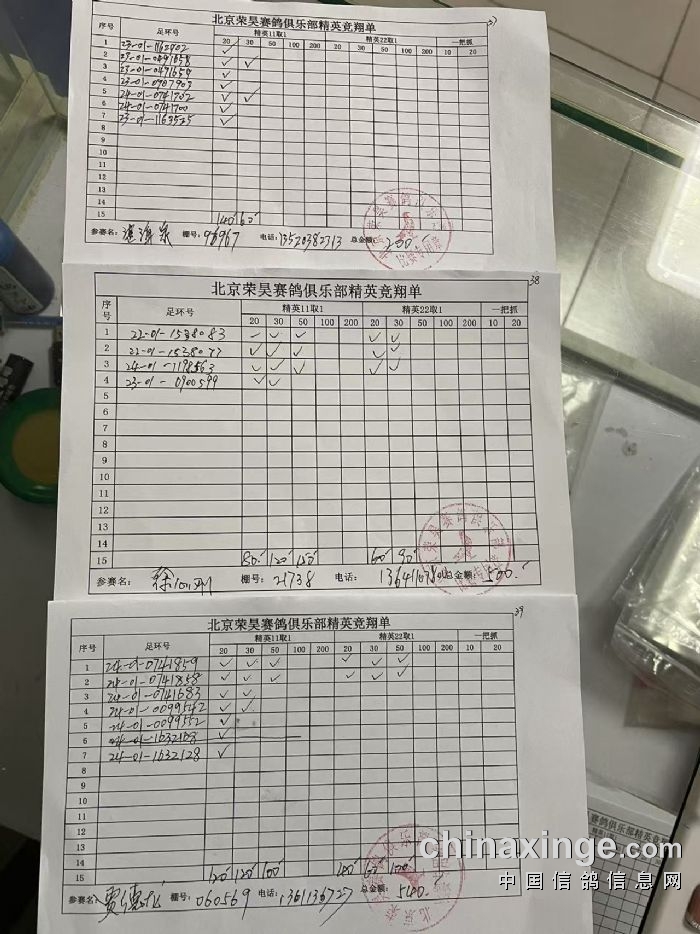 37
北京荣昊赛鸽俱乐部精英竞翔单
序号 足环号 精英11取1 精英22取1 一把抓
20 30 50 100 200 20 30 50 100 200 10 20
1 23-01-1162902 ✓
2 23-01-0471658 ✓ ✓
3 23-01-0471659 ✓
4 ✓
5 24-01-0741702 ✓ ✓
6 24-01-0741700 ✓
7 23-01-1163525 ✓
8
9
10
11
12
13
14
15 140 60
参赛名: 棚号: 98967 电话: 13520382713 总金额: 200.
38
北京荣昊赛鸽俱乐部精英竞翔单
序号 足环号 精英11取1 精英22取1 一把抓
20 30 50 100 200 20 30 50 100 200 10 20
1 22-01-1538083 ✓ ✓ ✓ ✓ ✓
2 22-01-1538077 ✓ ✓ ✓ ✓ ✓
3 24-01-1198563 ✓ ✓ ✓ ✓ ✓
4 23-01-0900599 ✓ ✓
5
6
7
8
9
10
11
12
13
14
15 80 120 150 60 90
参赛名: 棚号: 21738 电话: 总金额: 500.
39
北京荣昊赛鸽俱乐部精英竞翔单
序号 足环号 精英11取1 精英22取1 一把抓
20 30 50 100 200 20 30 50 100 200 10 20
1 24-01-0741859 ✓ ✓ ✓ ✓ ✓ ✓
2 24-01-0741858 ✓ ✓ ✓ ✓ ✓ ✓
3 24-01-0741683 ✓ ✓
4 24-01-0099542 ✓ ✓
5 24-01-0099552 ✓
6 24-01-1632168 ✓
7 24-01-1632128 ✓
8
9
10
11
12
13
14
15 120 120 100 40 60 100
参赛名: 棚号: 060569 电话: 13611136727 总金额: 540.
赛鸽俱乐部精英竞
chinaxinge.com
中国信鸽信息网